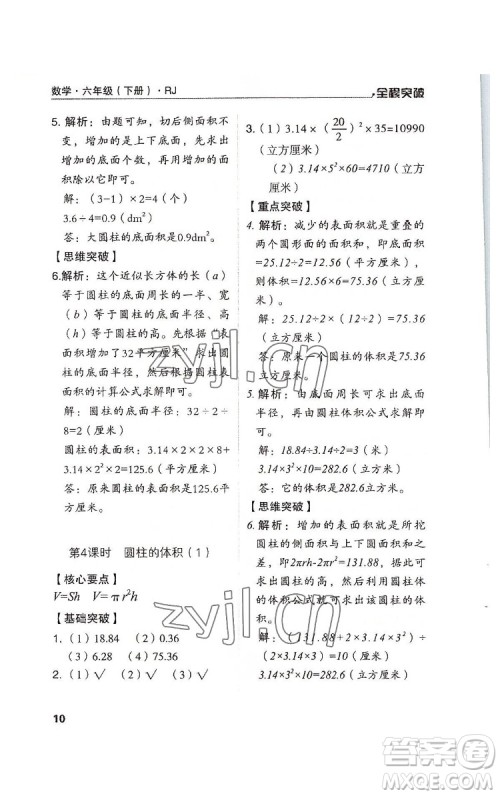 数学·六年级(下册)·RJ
全程突破
5. 解析：由题可知，切后侧面积不
变，增加的是上下底面，先求出
增加的底面个数，再用增加的面
积除以它即可。
解：(3-1)×2=4(个)
3.6÷4=0.9(dm²)
答：大圆柱的底面积是0.9dm²。
【思维突破】
6.解析：这个近似长方体的长(a)
等于圆柱的底面周长的一半、宽
(b)等于圆柱的底面半径、高
(h)等于圆柱的高。先根据“表
面积增加了32平方厘米”求出底
面半径，再根据圆柱体的表面
积的计算公式求解即可。
解：圆柱的底面半径：32÷2÷
8=2(厘米)
圆柱的表面积：3.14×2×2×8+
3.14×2²×2=125.6(平方厘米)
答：原来圆柱的表面积是125.6平
方厘米。
第4课时 圆柱的体积(1)
【核心要点】
V=Sh V=πr²h
【基础突破】
1. (1)18.84 (2)0.36
(3)6.28 (4)75.36
2. (1)√ (2)× (3)√
3. (1)3.14×(20/2)²×35=10990
(立方厘米)
(2)3.14×5²×60=4710(立方
厘米)
【重点突破】
4. 解析：减少的表面积就是重叠的
两个圆形的面积和，则底面积
=25.12÷2=12.56(平方厘米)，
则体积=12.56×6=75.36(立方
厘米)。
解：25.12÷2×(12÷2)=75.36
(立方厘米)
答：原来一个圆柱的体积是75.36
立方厘米。
5. 解析：由底面周长可求出底面
半径，再由圆柱体积公式求解即
可。
解：18.84÷3.14÷2=3(米)
3.14×3²×10=282.6(立方米)
答：它的体积是282.6立方米。
【思维突破】
6. 解析：增加的表面积就是所挖
圆柱的侧面积与底面积之
差，即2πrh-2πr²=131.88，据
此可求出该圆柱的高，再根据
体积公式可求出该圆柱的体
积。
解：(131.88+2×3.14×3²)÷
(2×3.14×3)=10(厘米)
3.14×3²×10=282.6(立方厘米)
10
zyjl.cn
zyjl.cn
答案圈
MXQE.COM